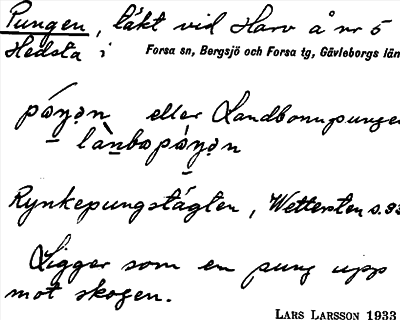 Pungen, läkt vid Harv å nr 5
Hedsta i Forsa sn, Bergsjö och Forsa tg, Gävleborgs län
eller Landbonnpungen
Rynkepungstägten, Wettersten s. 93
Ligger som en pung upp
mot skogen.
LARS LARSSON 1933